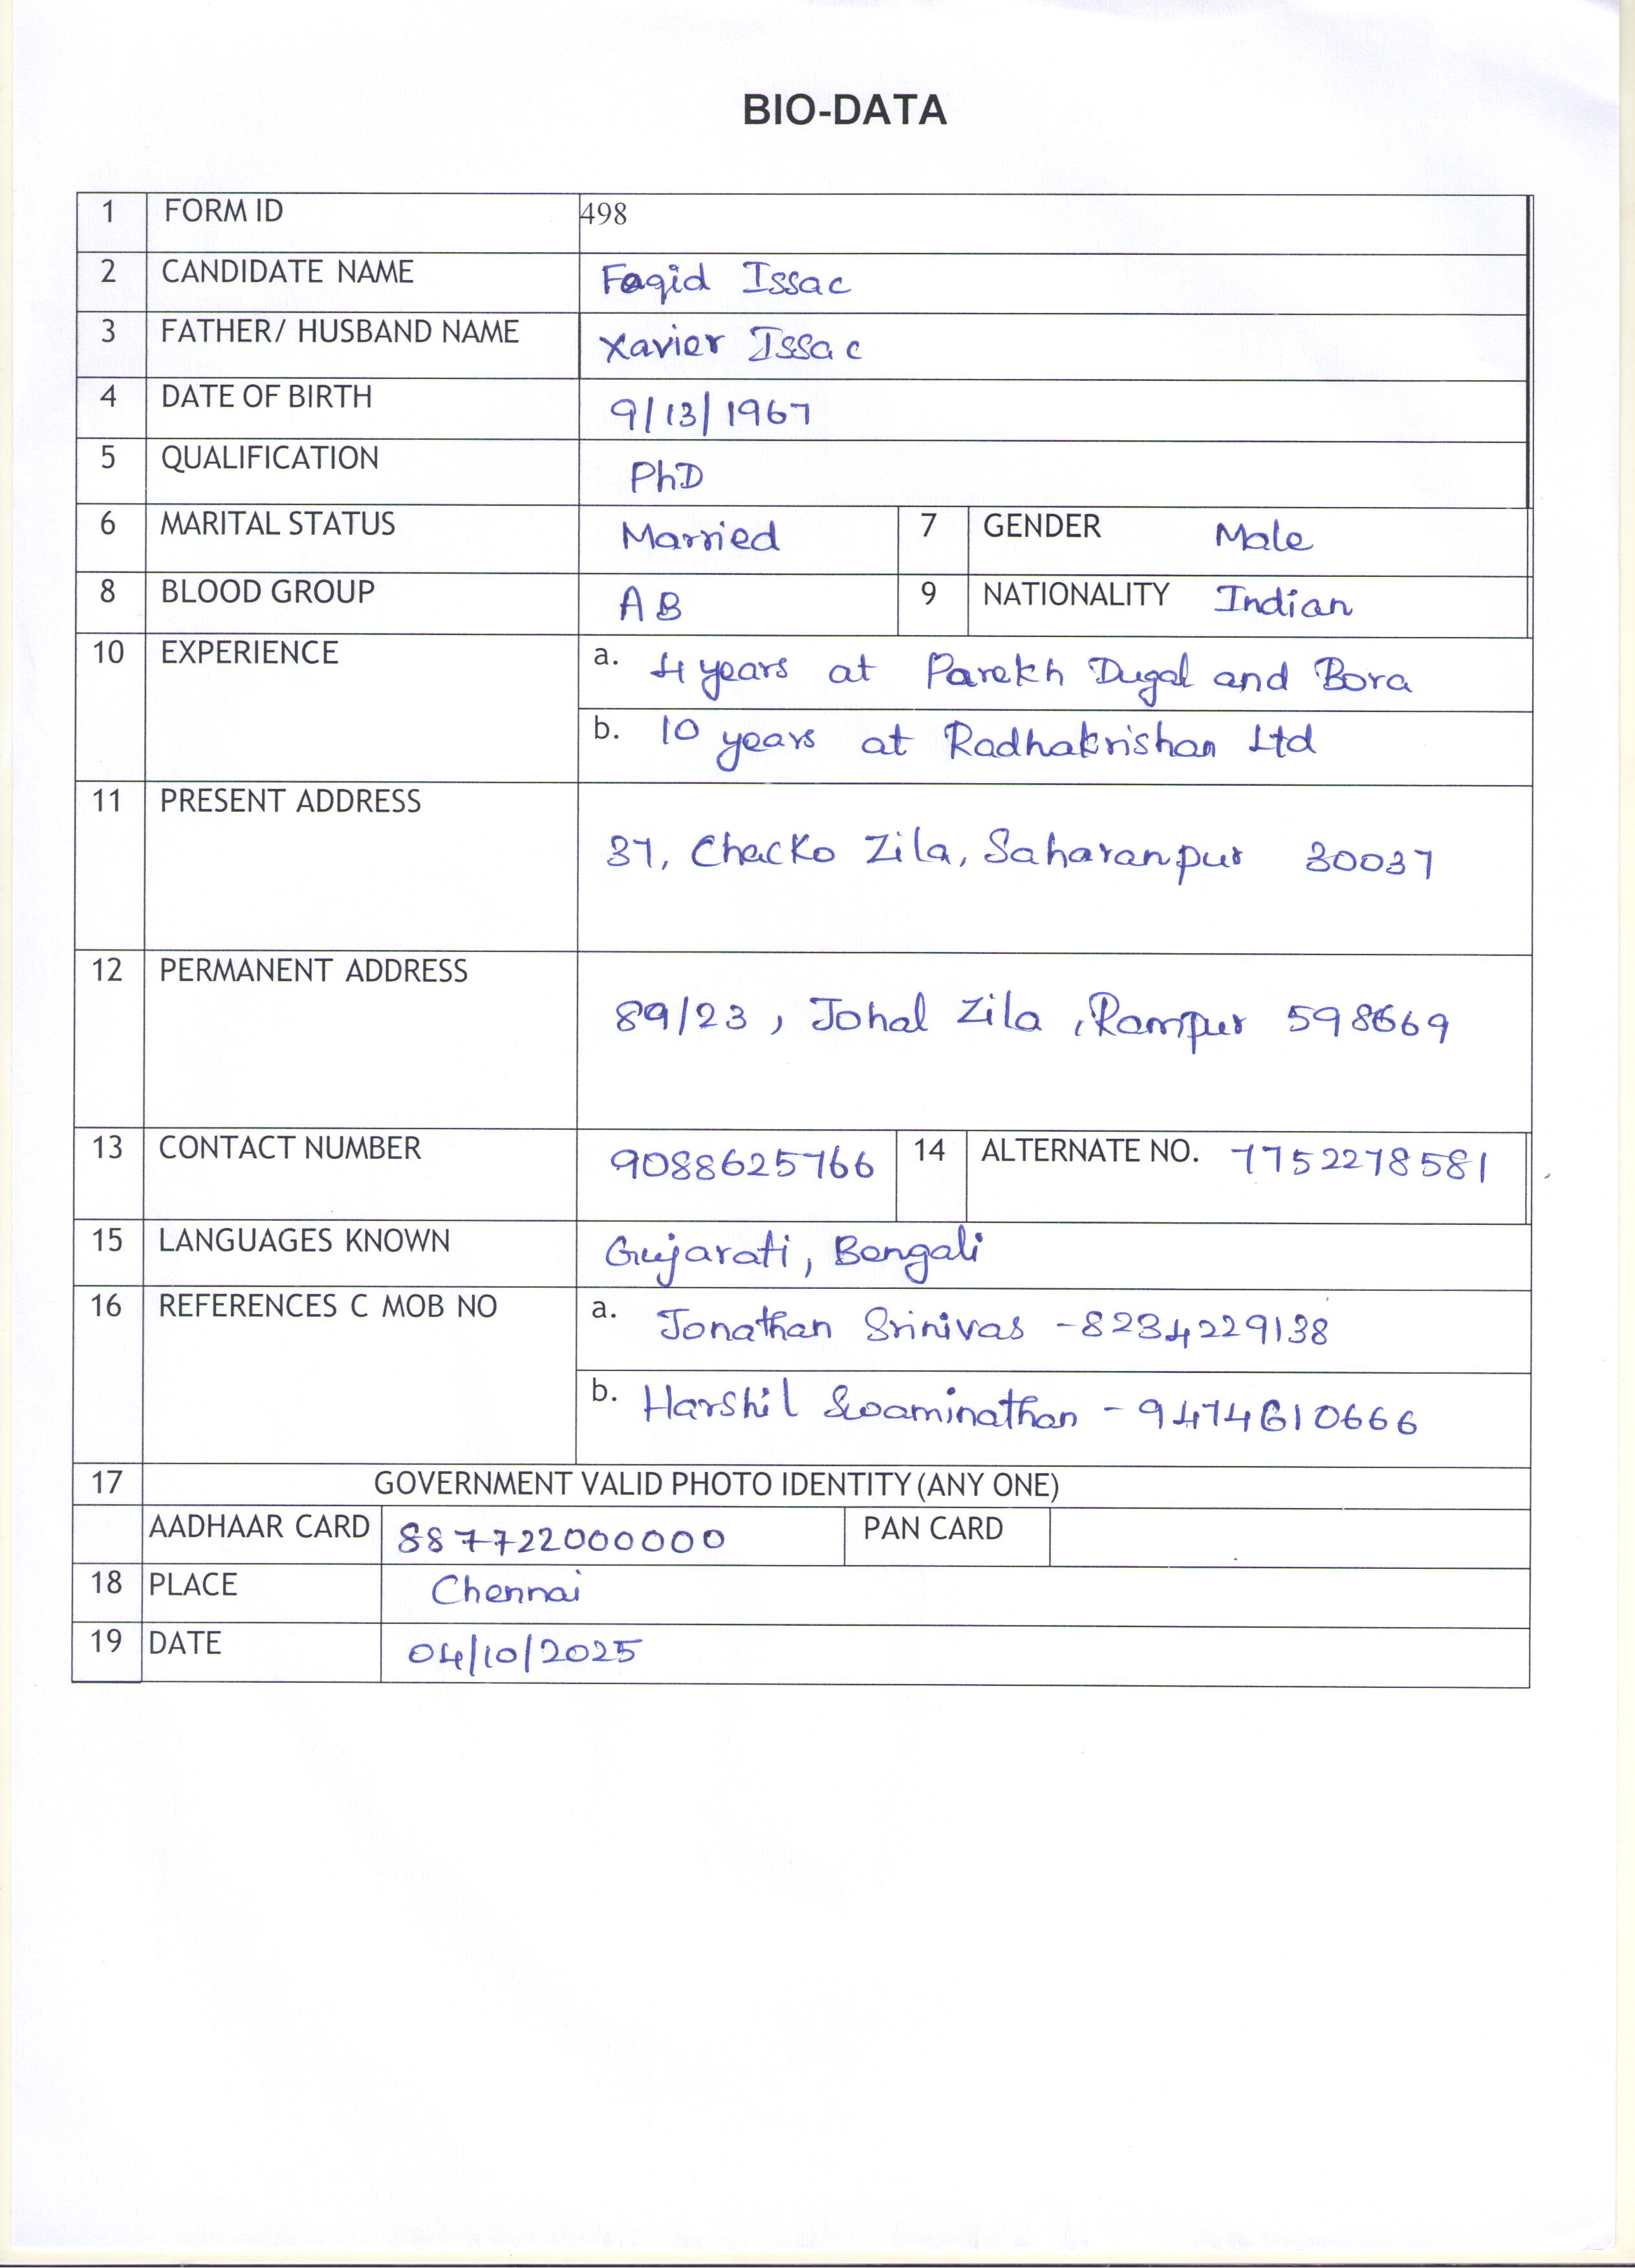 BIO-DATA
1 FORM ID 498
2 CANDIDATE NAME Faqid Issac
3 FATHER/ HUSBAND NAME Xavier Issac
4 DATE OF BIRTH 9/13/1967
5 QUALIFICATION PhD
6 MARITAL STATUS Married 7 GENDER Male
8 BLOOD GROUP AB 9 NATIONALITY Indian
10 EXPERIENCE a. 4 years at Parekh Dugal and Bora
b. 10 years at Radhakrishan Ltd
11 PRESENT ADDRESS
37, Chacko Zila, Saharanpur 30037
12 PERMANENT ADDRESS
89/23, Johal Zila, Rampur 598669
13 CONTACT NUMBER 9088625766 14 ALTERNATE NO. 7752278581
15 LANGUAGES KNOWN Gujarati, Bengali
16 REFERENCES C MOB NO a. Jonathan Srinivas - 8234229138
b. Harshil Swaminathan - 9474610666
17 GOVERNMENT VALID PHOTO IDENTITY (ANY ONE)
AADHAAR CARD 887722000000 PAN CARD
18 PLACE Chennai
19 DATE 04/10/2025